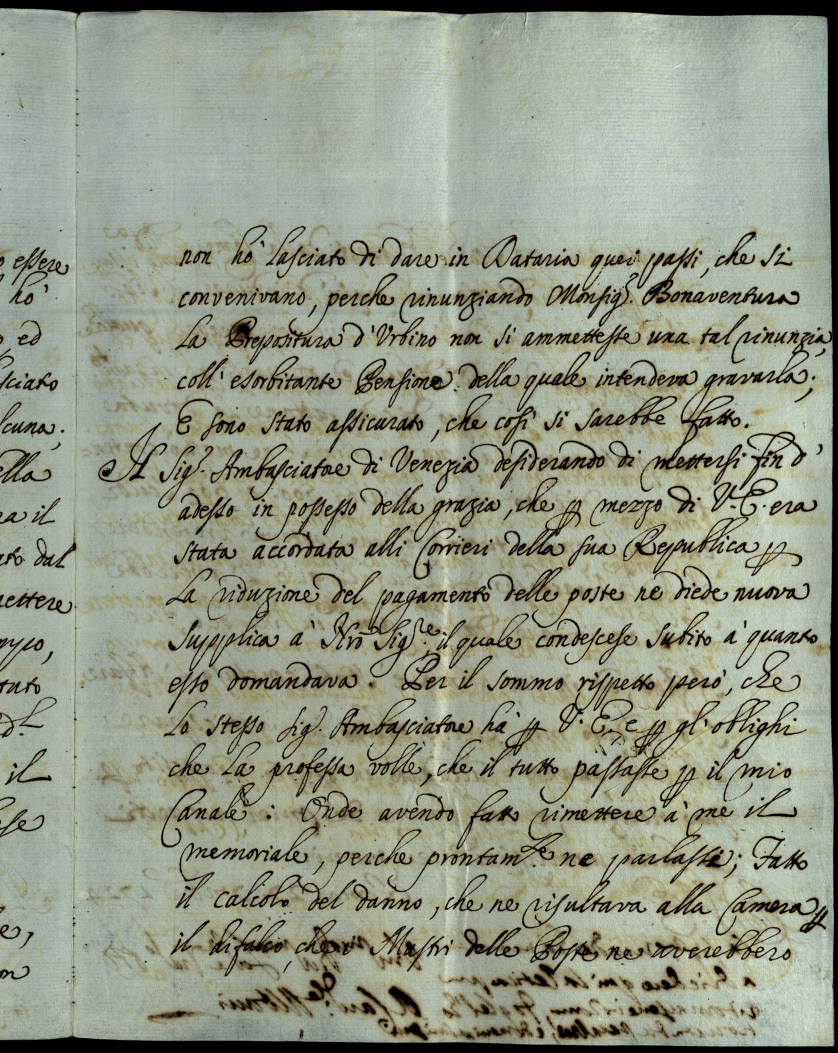 o essere
hò
o ed
sciato
lcuna;
ella
ra il
ato dal
mettere
tato
il
ese
e,
on
non hò lasciato di dare in Dataria quei passi, che si
convenivano, perche rinunziando Monsig.r Bonaventura
la Prepositura d'Urbino non si ammettesse una tal rinunzia
coll' esorbitante Pensione della quale intendeva gravarla;
E sono stato assicurato, che così si sarebbe fatto.
Il Sig.r Ambasciatore di Venezia desiderando di mettersi fin d'
adesso in possesso della grazia, che ꝑ mezzo di V.E. era
stata accordata alli Corrieri della sua Republica ꝑ
la riduzione del pagamento delle poste ne diede nuova
supplica à Nrõ Sig.re il quale condescese subito à quanto
esso domandava. Per il sommo rispetto però, che
lo stesso Sig.r Ambasciatore hà ꝑ V.E., e ꝑ gl'oblighi
che la professa volle, che il tutto passasse ꝑ il mio
Canale: Onde avendo fatto rimettere à me il
memoriale, perche prontam.te ne parlassi; Fatto
il calcolo del danno, che ne risultava alla Camera ꝑ
il difalco, che i Mastri delle Poste ne averebbero